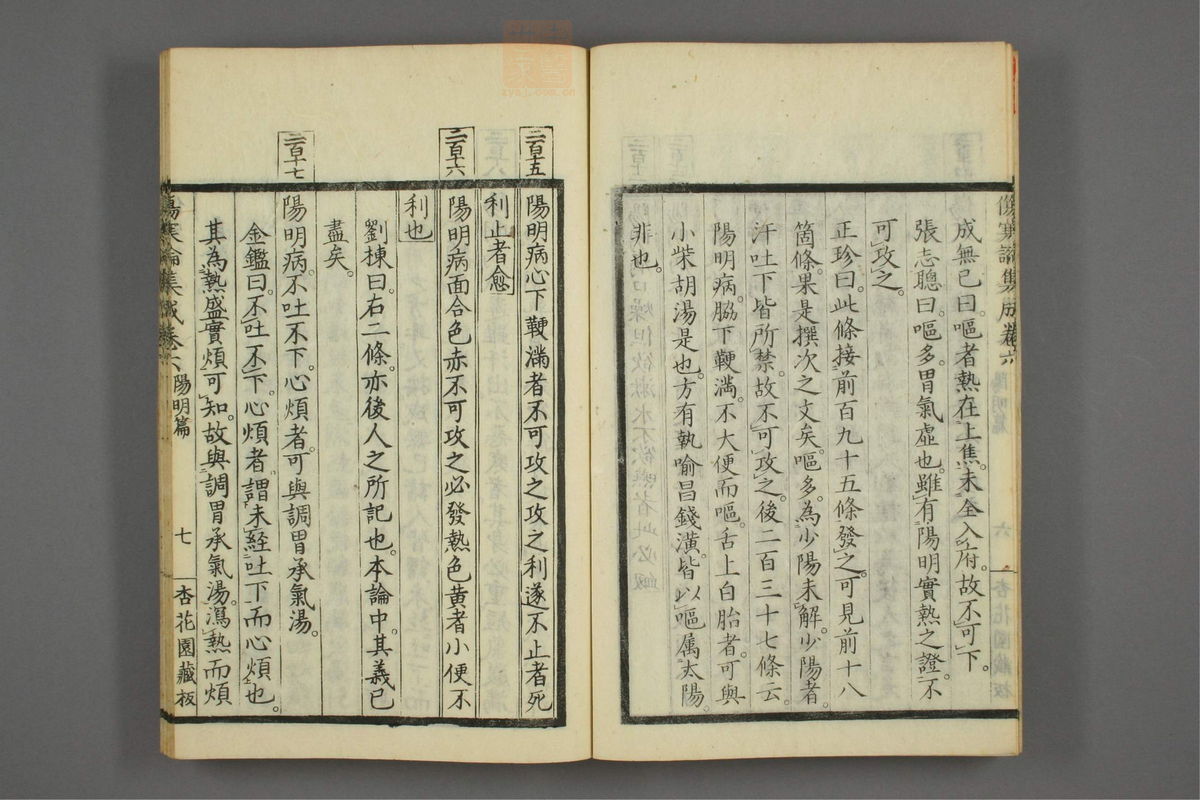 傷寒論集成卷六
六
杏花園藏板
成無已曰嘔者熱在上焦未全入府故不可下
張志聰曰嘔多胃氣虛也雖有陽明實熱之證不
可攻之
正珍曰此條接前百九十五條發之可見前十八
箇條果是撰次之文矣嘔多為少陽未解少陽者
汗吐下皆所禁故不可攻之後二百三十七條云
陽明病脇下鞕滿不大便而嘔舌上白胎者可與
小柴胡湯是也方有執喻昌錢潢皆以嘔属太陽
非也
二百十五
陽明病心下鞕滿者不可攻之攻之利遂不止者死
利止者愈
二百十六
陽明病面合色赤不可攻之必發熱色黄者小便不
利也
劉棟曰右二條亦後人之所記也本論中其義已
盡矣
二百十七
陽明病不吐不下心煩者可與調胃承氣湯
金鑑曰不吐不下心煩者謂未經吐下而心煩也
其為熱盛實煩可知故與調胃承氣湯瀉熱而煩
傷寒論集成卷六 陽明篇
七
杏花園藏板
zysj.com.cn